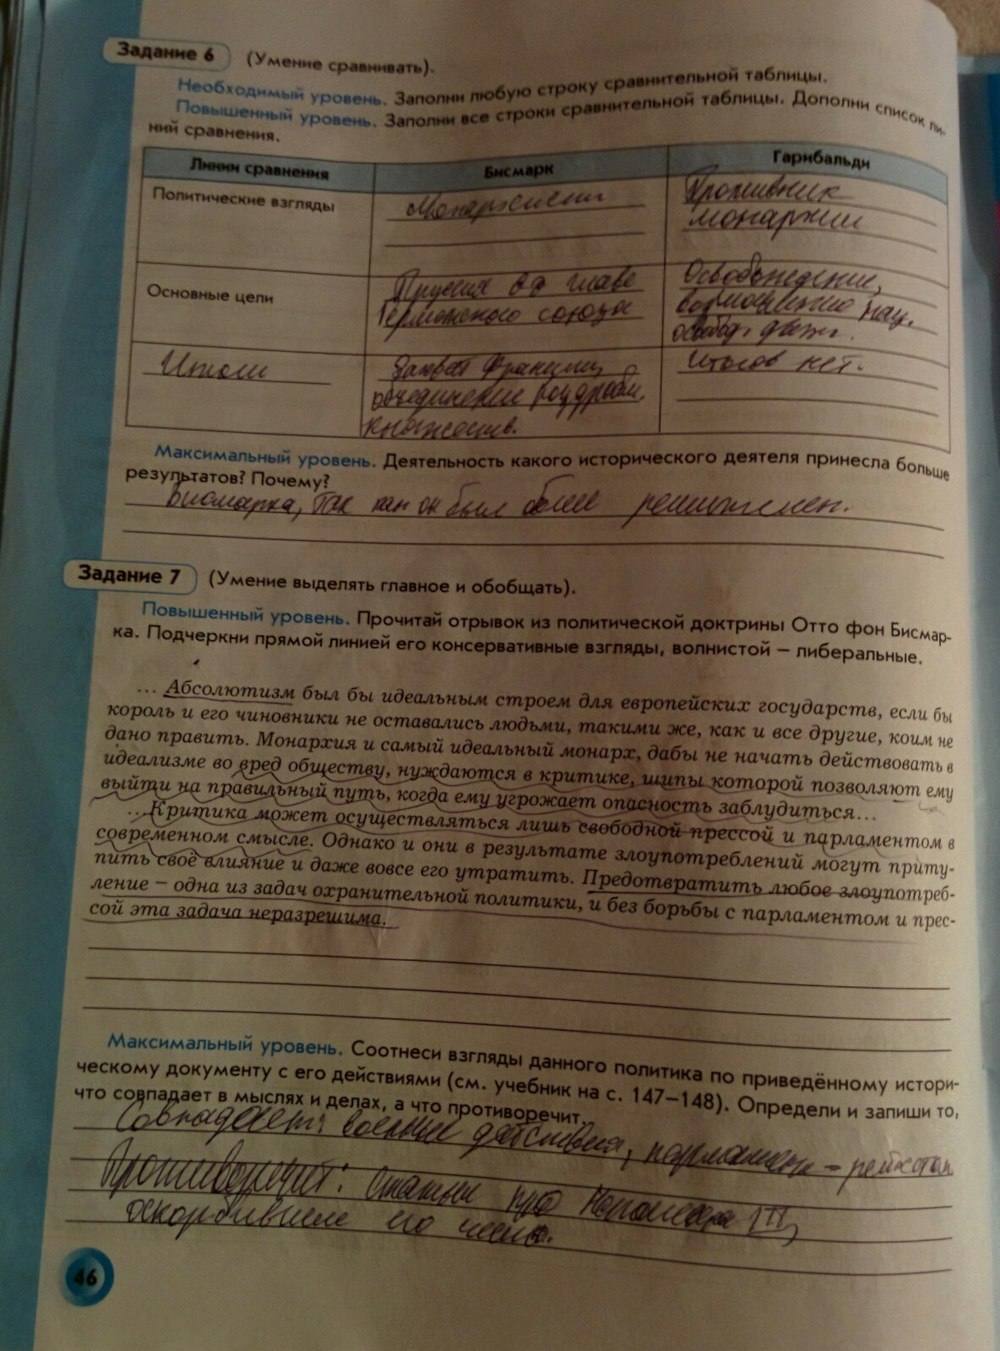 Задание 6 (Умение сравнивать).
Необходимый уровень. Заполни любую строку сравнительной таблицы.
Повышенный уровень. Заполни все строки сравнительной таблицы. Дополни список ли-
ний сравнения.
Линии сравнения Бисмарк Гарибальди
Политические взгляды Монархист Противник
монархии
Основные цели Пруссия во главе Освобождение,
Германского союза нац.
освобод. движ.
Итоги Захват Франции, Итогов нет.
объединение раздробл.
княжеств.
Максимальный уровень. Деятельность какого исторического деятеля принесла больше
результатов? Почему?
Бисмарка, так как он был более
Задание 7 (Умение выделять главное и обобщать).
Повышенный уровень. Прочитай отрывок из политической доктрины Отто фон Бисмар-
ка. Подчеркни прямой линией его консервативные взгляды, волнистой – либеральные.
... Абсолютизм был бы идеальным строем для европейских государств, если бы
король и его чиновники не оставались людьми, такими же, как и все другие, коим не
дано править. Монархия и самый идеальный монарх, дабы не начать действовать в
идеализме во вред обществу, нуждаются в критике, шипы которой позволяют ему
выйти на правильный путь, когда ему угрожает опасность заблудиться...
...Критика может осуществляться лишь свободной прессой и парламентом в
современном смысле. Однако и они в результате злоупотреблений могут приту-
пить своё влияние и даже вовсе его утратить. Предотвратить любое злоупотреб-
ление – одна из задач охранительной политики, и без борьбы с парламентом и прес-
сой эта задача неразрешима.
Максимальный уровень. Соотнеси взгляды данного политика по приведённому истори-
ческому документу с его действиями (см. учебник на с. 147–148). Определи и запиши то,
что совпадает в мыслях и делах, а что противоречит.
Совпадает: военные действия, парламент – рейхстаг
Противоречит: статьи про Наполеона III,
оскорбившие его честь.
46